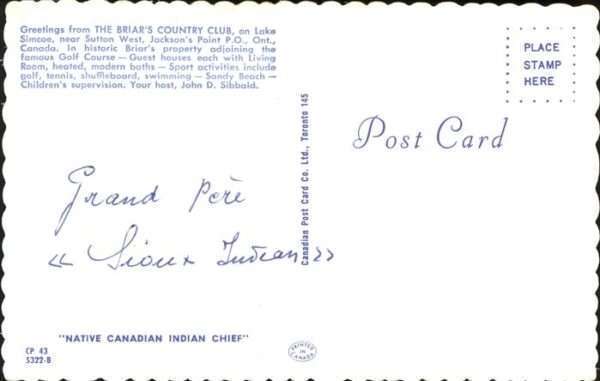 Greetings from THE BRIAR'S COUNTRY CLUB, on Lake
Simcoe, near Sutton West, Jackson's Point P.O., Ont.,
Canada. In historic Briar's property adjoining the
famous Golf Course — Guest houses each with Living
Room, heated, modern baths — Sport activities include
golf, tennis, shuffleboard, swimming — Sandy Beach —
Children's supervision. Your host, John D. Sibbald.
PLACE
STAMP
HERE
Post Card
Canadian Post Card Co. Ltd., Toronto 145
Grand père
« Sioux Indian »
"NATIVE CANADIAN INDIAN CHIEF"
CP 43
5322-B
PRINTED
IN
CANADA